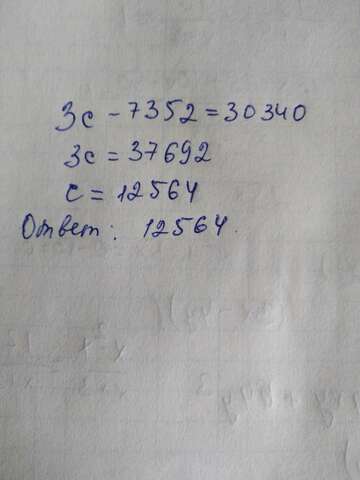 3c - 7352 = 30340
3c = 37692
c = 12564
Ответ: 12564.